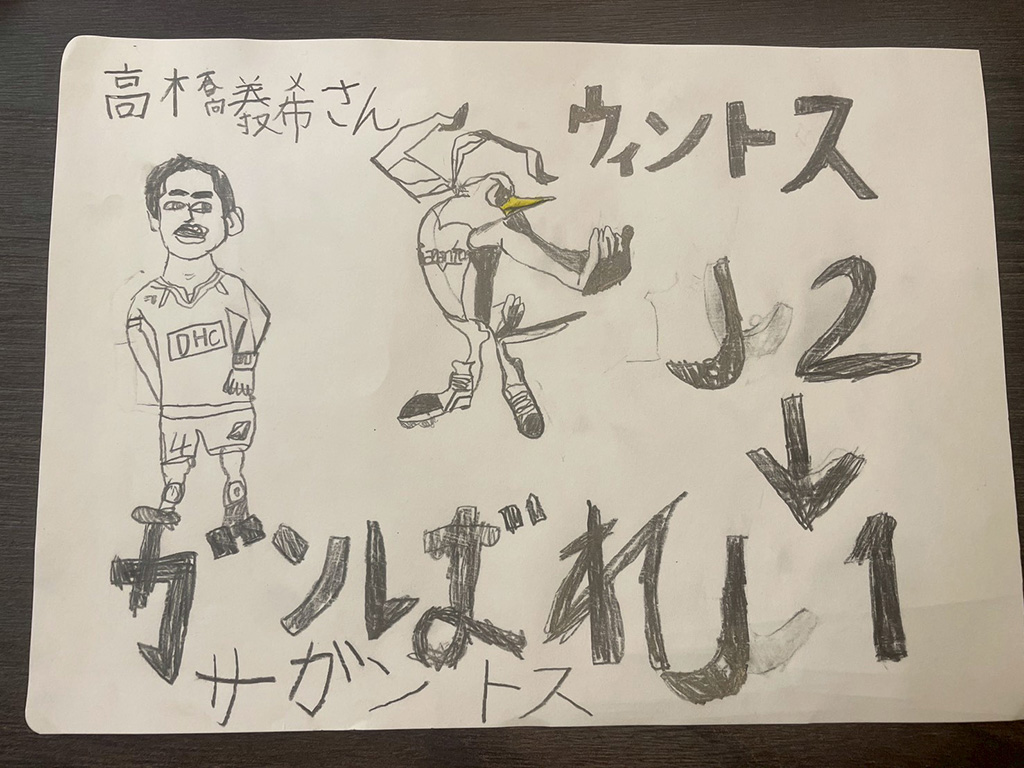 高橋義希さん
ウィントス
DHC
J2
4
↓
ガンばれ J1
サガントス